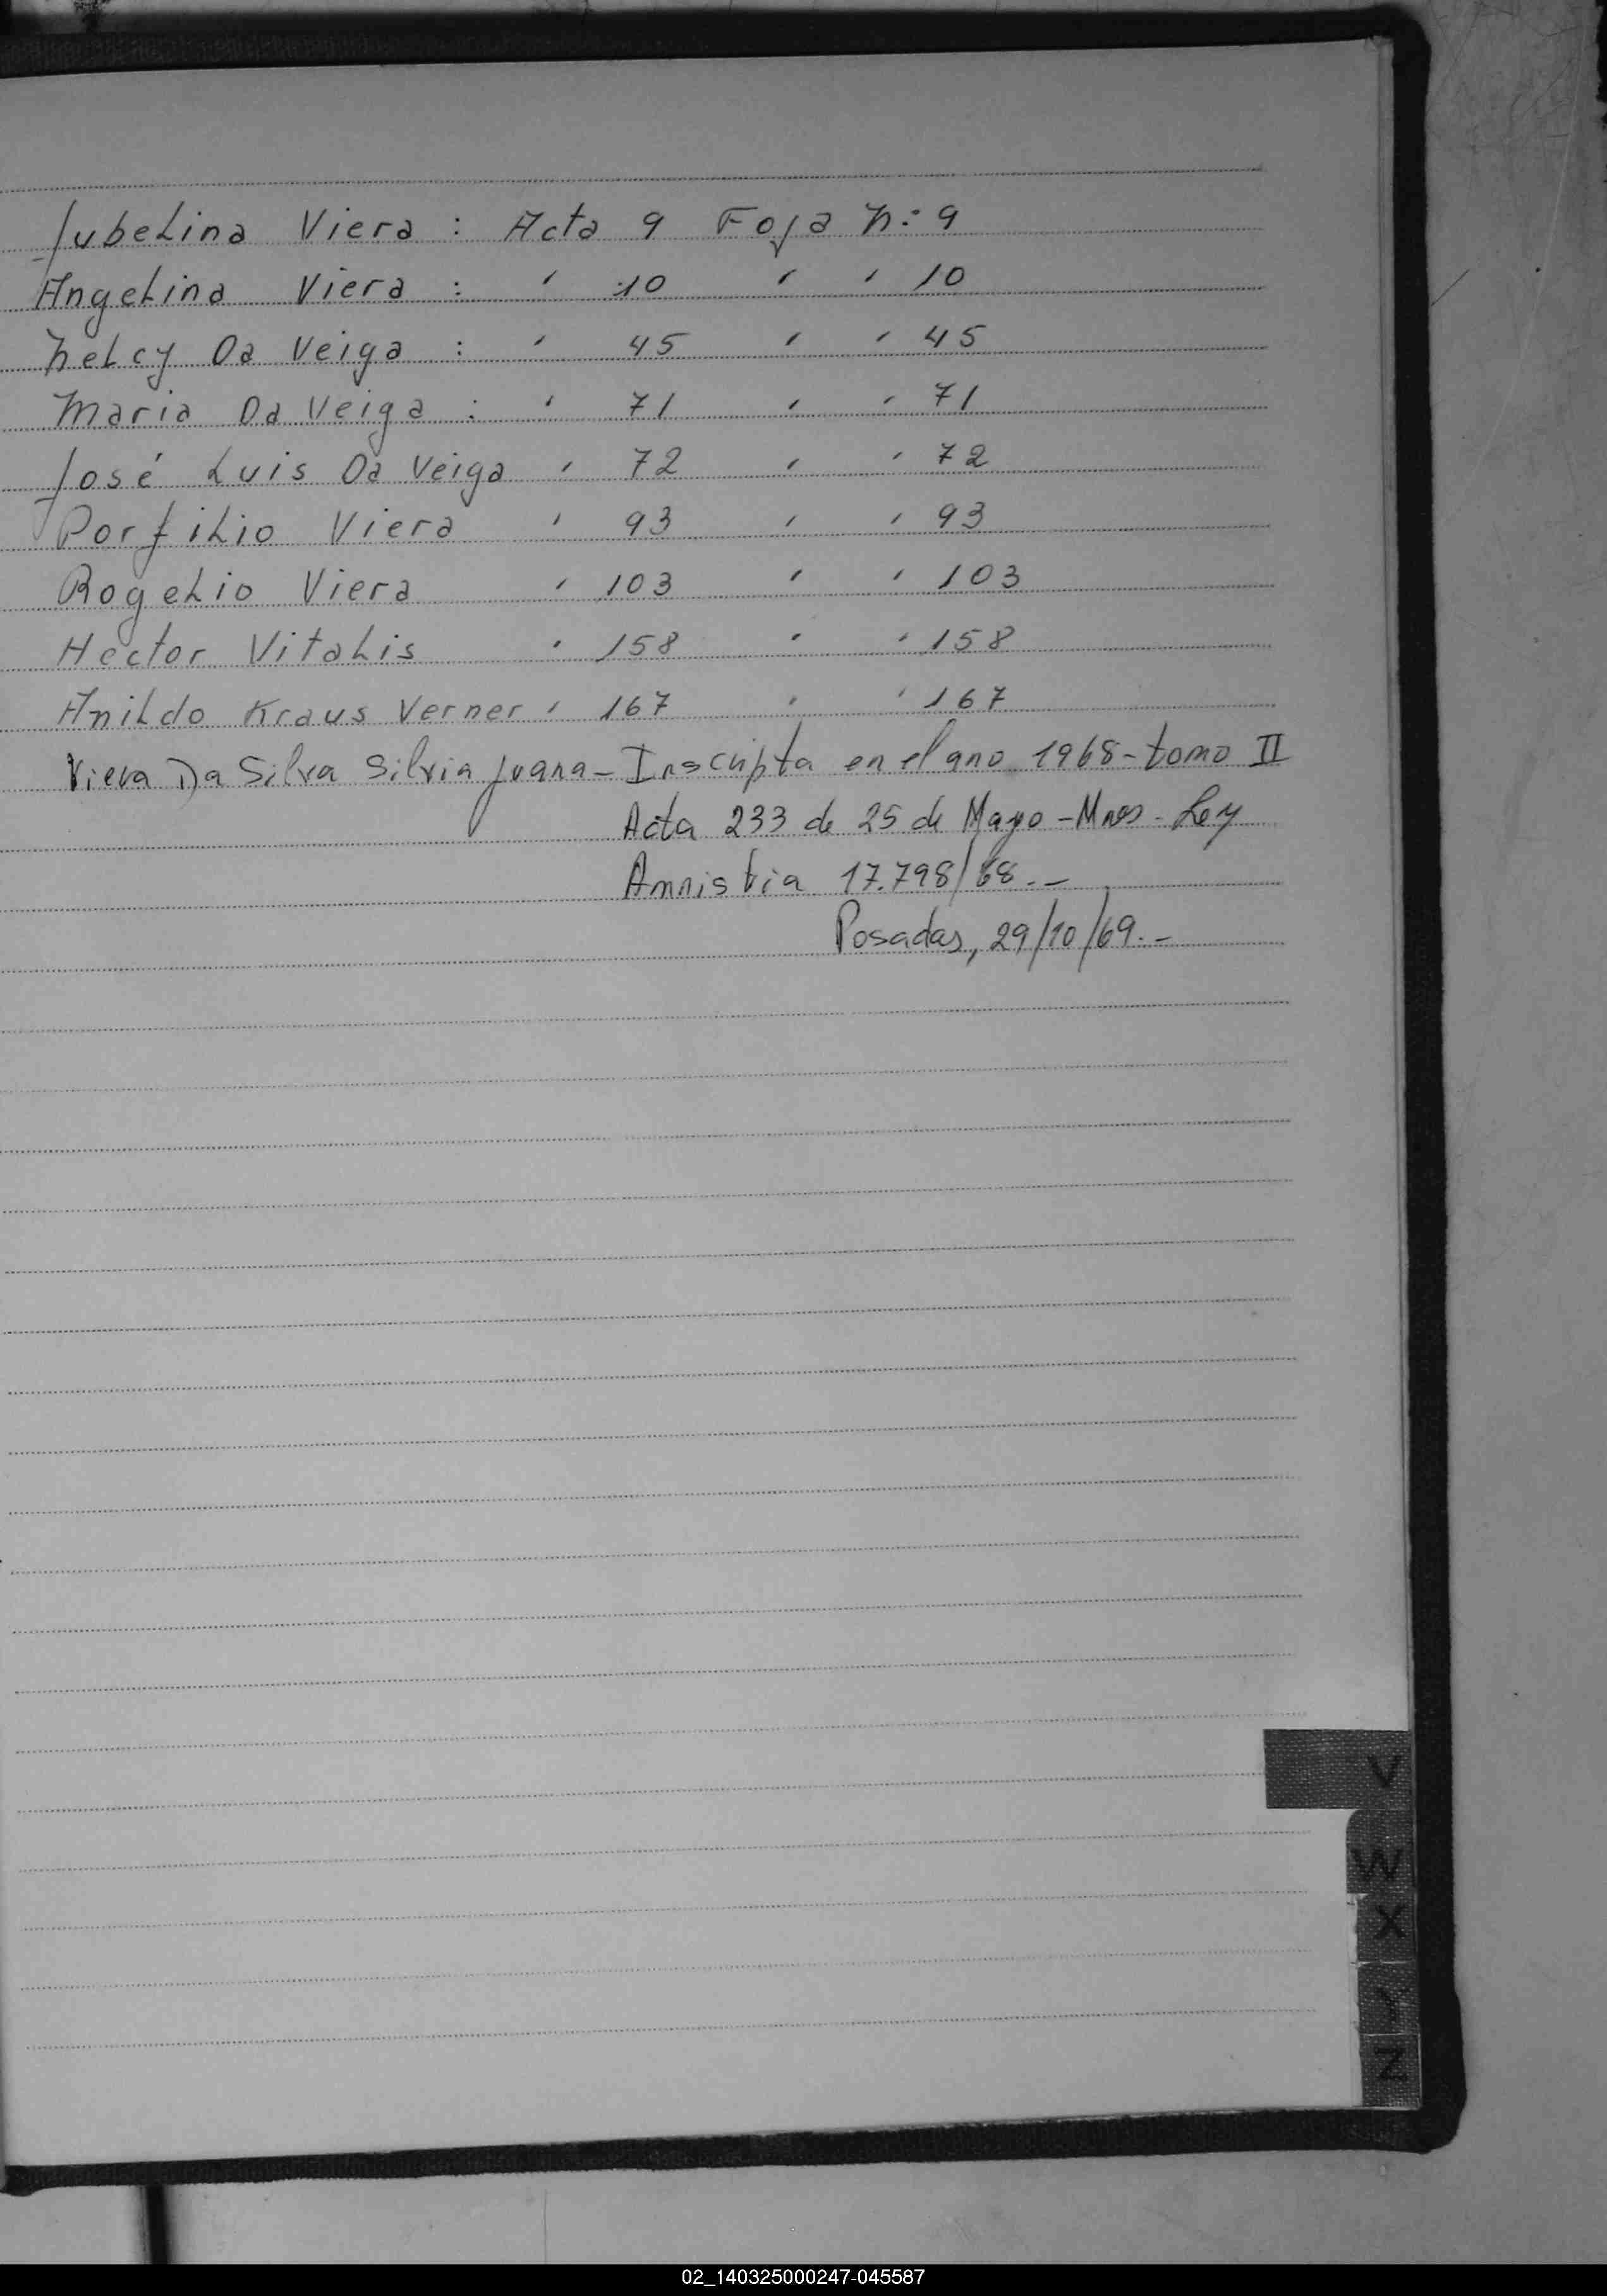 Jubelina Viera : Acta 9 Foja N: 9
Angelina Viera : ' 10 ' ' 10
Nelcy Da Veiga : ' 45 ' ' 45
Maria Da Veiga : ' 71 ' ' 71
José Luis Da Veiga ' 72 ' ' 72
Porfilio Viera ' 93 ' ' 93
Rogelio Viera ' 103 ' ' 103
Hector Vitalis ' 158 ' ' 158
Anildo Kraus Verner ' 167 ' ' 167
Viera Da Silva Silvia Juana - Inscripta en el ano 1968 - tomo II
Acta 233 de 25 de Mayo - Mnes - Ley
Amnistia 17.798/68.-
Posadas, 29/10/69.-
V
W
X
Y
Z
02_140325000247-045587